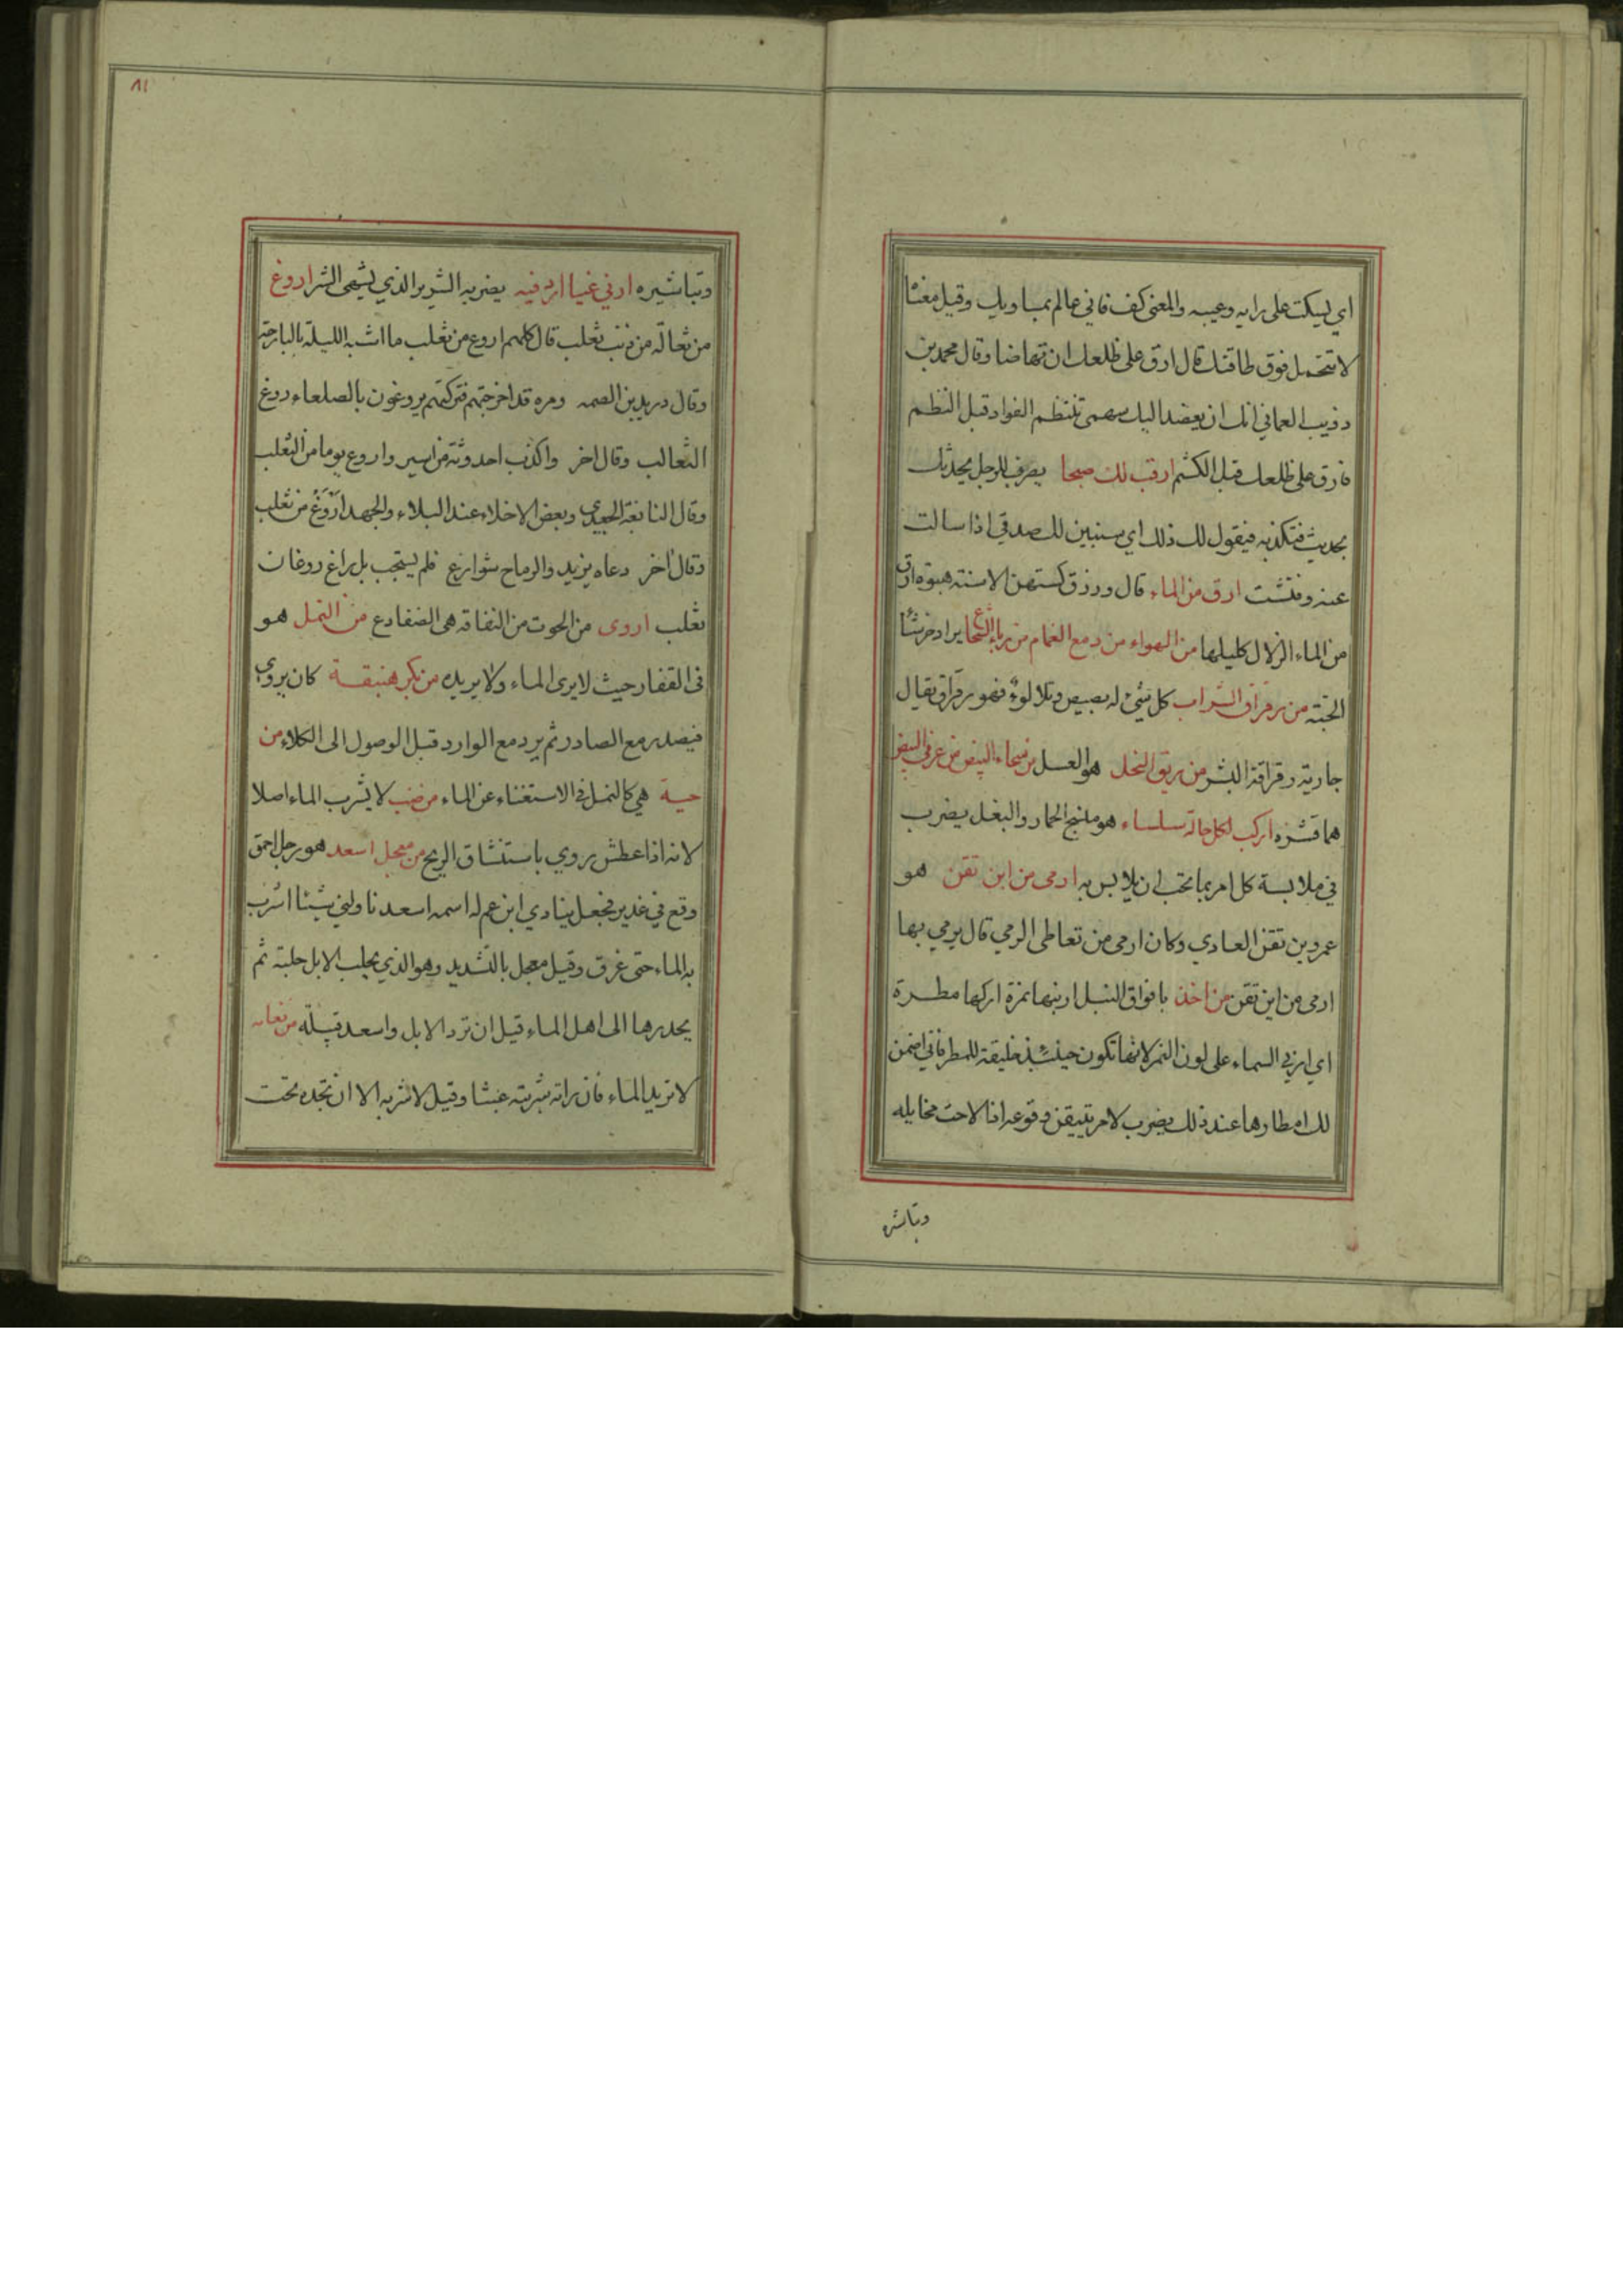 اي ليسكت على رايه وعيبه والمعنى كف فاني عالم بمساويك وقيل معناه
لا تتحمل فوق طاقتك قال ارق على ظلعك ان تهاضا وقال محمد بن
ذويب العماني انك ان يعضد اليك سهمى تنتظم الفواد قبل النظم
فارق على ظلعك قبل الكشم ارقب لك صبحا يضرب للرجل يحدثك
بحديث فتكذبه فيقول لك ذلك اي ستبين لك صدقي اذا سالت
عنه وفتشت ارق من الماء قال وزرق كستهن الاسنة هبوة ارق
من الماء الزلال كليلها من الهواء من دمع الغمام من رداء الشجاع يراد خرشا
الحية من رقراق السراب كل شئ له بصيص وتلالوء فهو رقراق يقال
جارية رقراقة البشر من ريق النحل هو العسل من سحاء البيض من غرقئ البيض
هما قشره اركب لكل حالة سيساء هو منسج الحمار والبغل يضرب
في ملابسة كل امر بما يحب ان يلابس به ارمى من ابن تقن هو
عمرو بن تقن العادي وكان ارمى من تعاطى الرمي قال يرمي بها
ارمى من ابن تقن من اخذ بافواق النبل ارنيها نمرة اركها مطرة
اي ارني السماء على لون النمر لانها تكون حينئذ خليقة للمطر فاني اضمن
لك امطارها عند ذلك يضرب لامر يتيقن وقوعه اذا لاحت مخايله
وتباشيره
٨١
وتباشيره ارني غيا ارد فيه يضربه الشرير الذي يشهى الشر اروغ
من ثعالة من ذنب ثعلب قال كلهم اروغ من ثعلب ما اشبه الليلة بالبارحة
وقال دريد بن الصمه ومره قد اخرجتهم فتركتهم يروغون بالصلعاء روغ
الثعالب وقال اخر واكذب احدوثة من اسير واروغ يوما من الثعلب
وقال النابغة الجعدي وبعض الاخلاء عند البلاء والجهد اروغ من ثعلب
وقال اخر دعاه يزيد والرماح شوارع فلم يستجب بل راغ روغان
ثعلب اروى من الحوت من النقاقه هى الضفادع من النمل هو
فى القفار حيث لا يرى الماء ولا يريده من بكر هنبقة كان يروى
فيصدر مع الصادر ثم يرد مع الوارد قبل الوصول الى الكلاء من
حية هي كالنمل فى الاستغناء عن الماء من ضب لا يشرب الماء اصلا
لانه اذا عطش روي باستنشاق الريح من معجل اسعد هو رجل احمق
وقع في غدير فجعل ينادي ابن عم له اسمه اسعد ناولني شيئا اشرب
به الماء حتى غرق وقيل معجل بالتشديد وهو الذي يحلب الابل حلبة ثم
يحدرها الى اهل الماء قبل ان ترد الابل واسعد قبيلة من نعامه
لا تريد الماء فان راته شربته عبثا وقيل لا تشربه الا ان تجده تحت